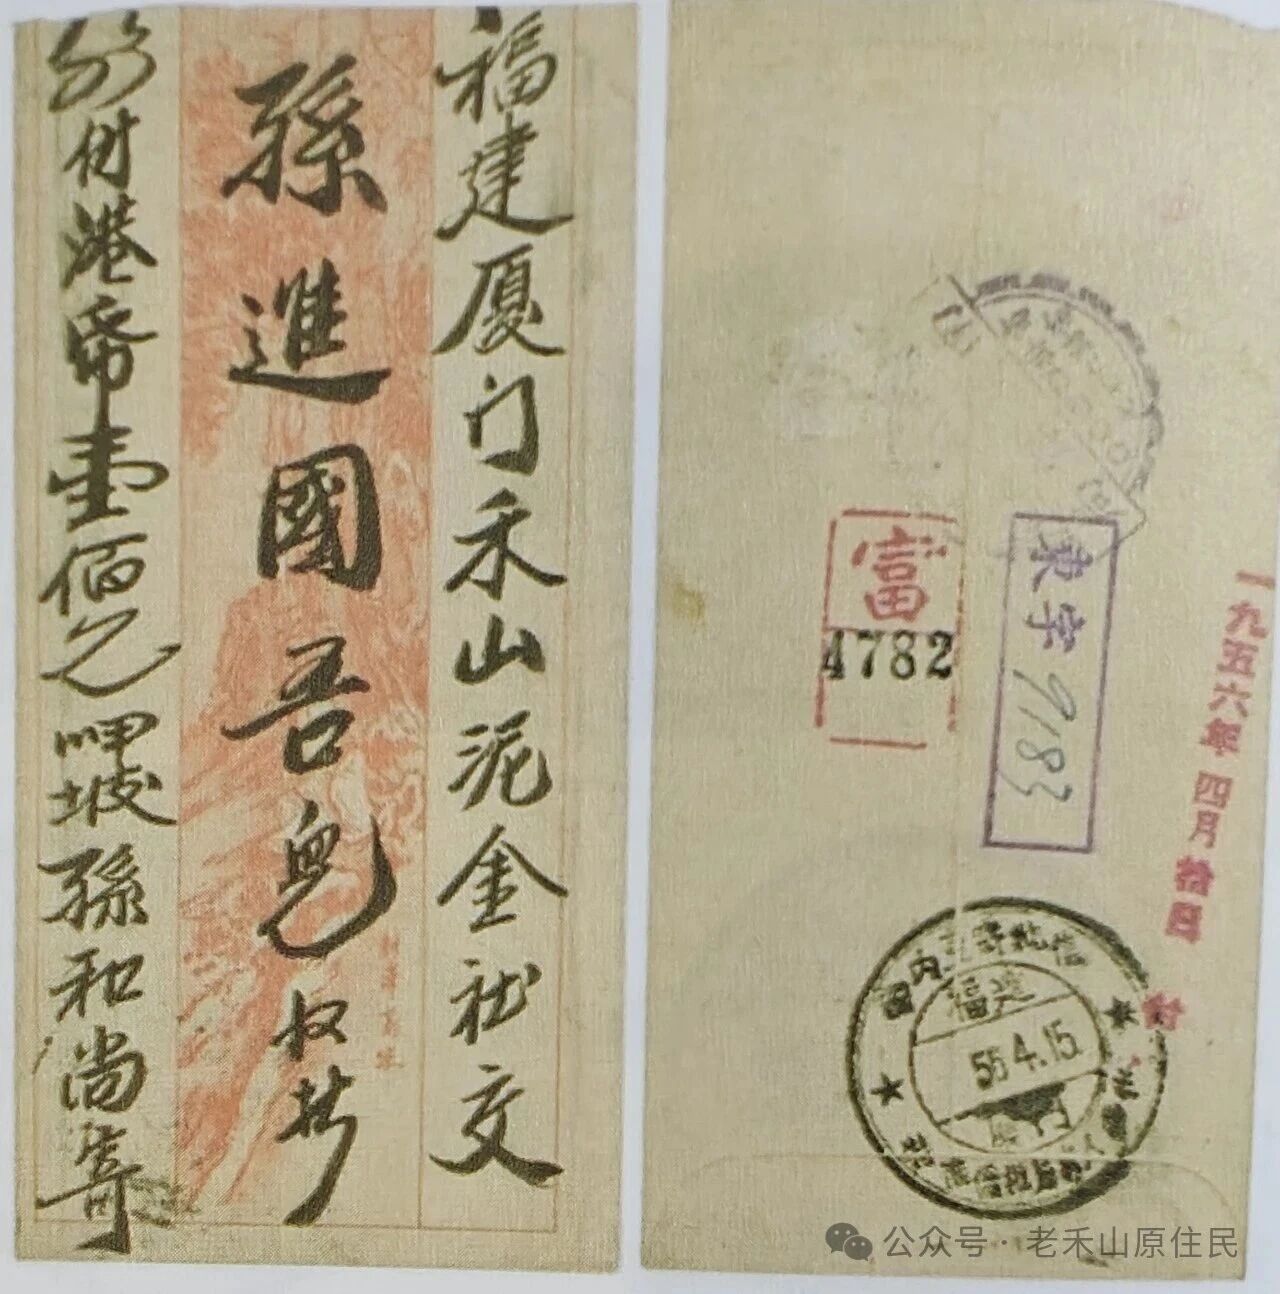 福建厦门禾山泥金社交
孫進國吾兒收栞
外付港幣壹佰元 呷坡孫和尚寄
富
4782
東字 9183
一九五六年四月拾四 付
福建
56.4.15
厦门
公众号·老禾山原住民